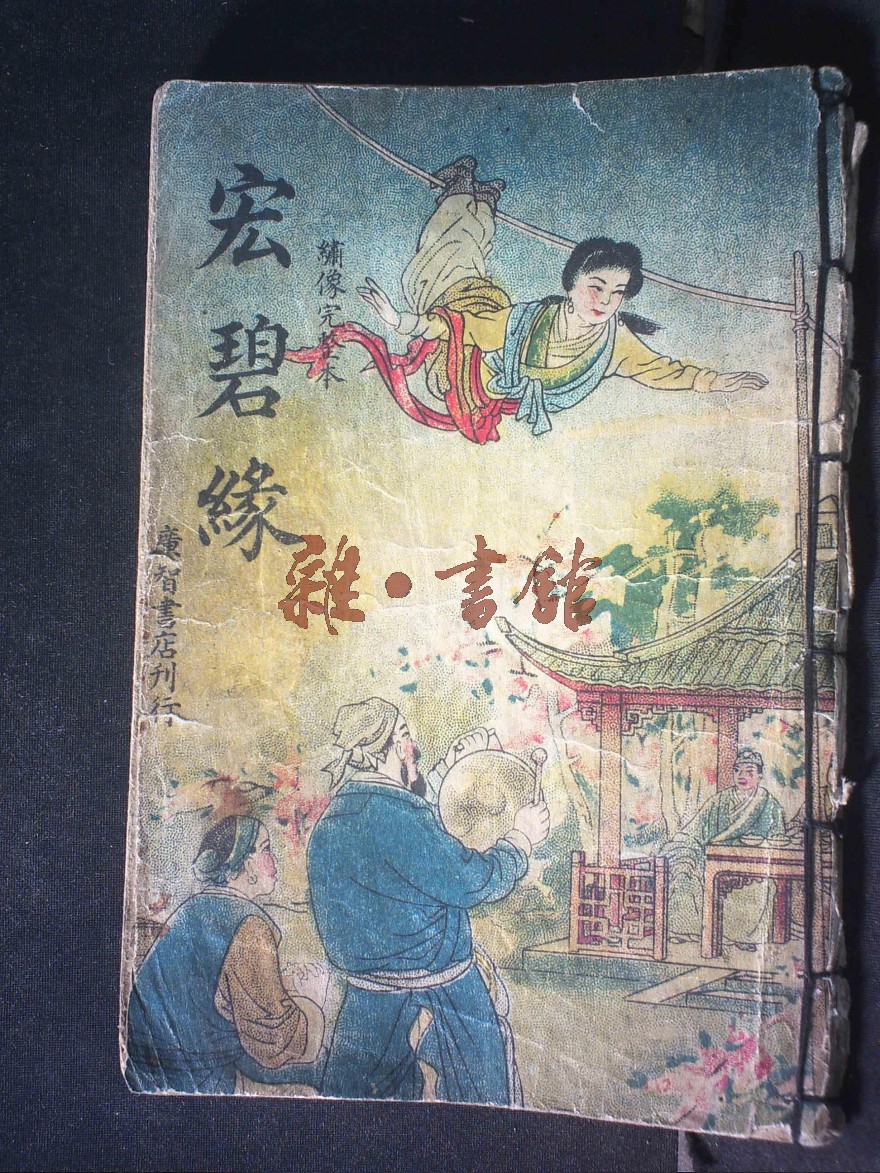 宏碧緣
繡像完全本
廣智書店刊行
雜·書館